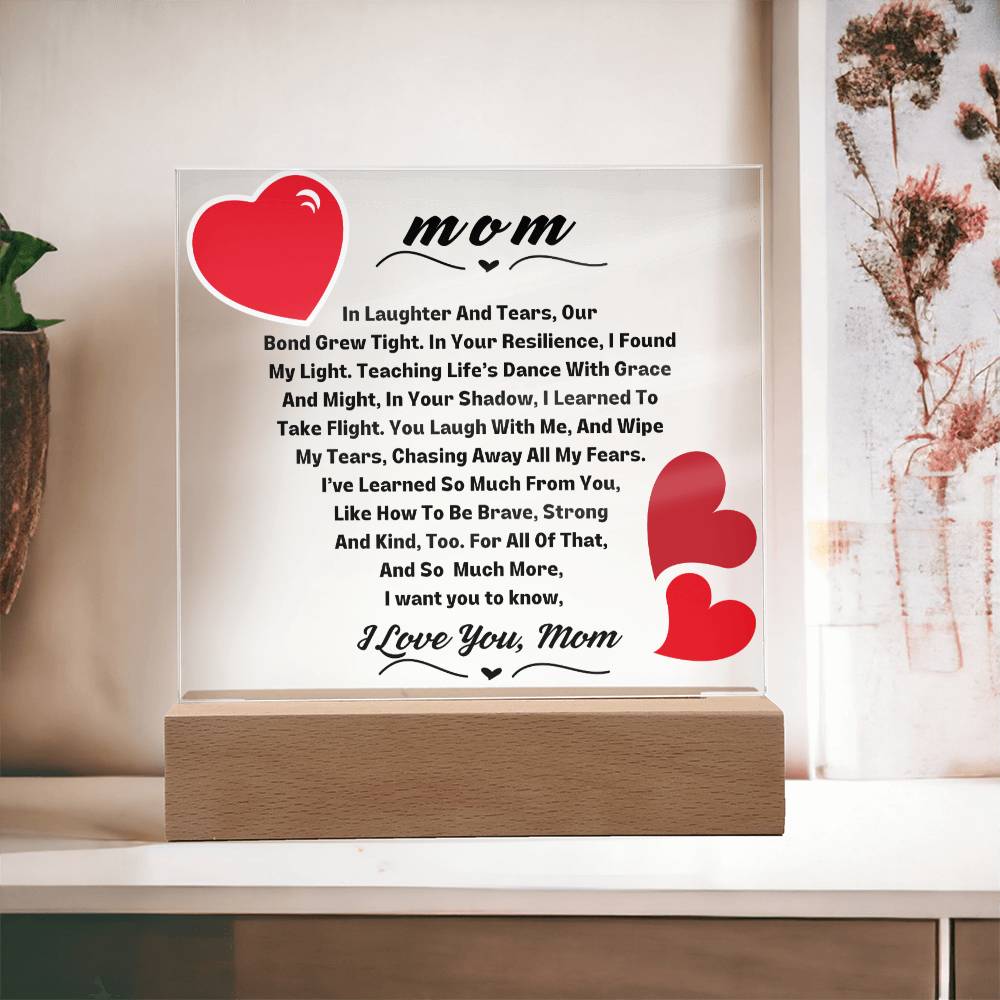 mom
In Laughter And Tears, Our
Bond Grew Tight. In Your Resilience, I Found
My Light. Teaching Life’s Dance With Grace
And Might, In Your Shadow, I Learned To
Take Flight. You Laugh With Me, And Wipe
My Tears, Chasing Away All My Fears.
I’ve Learned So Much From You,
Like How To Be Brave, Strong
And Kind, Too. For All Of That,
And So  Much More,
I want you to know,
I Love You, Mom